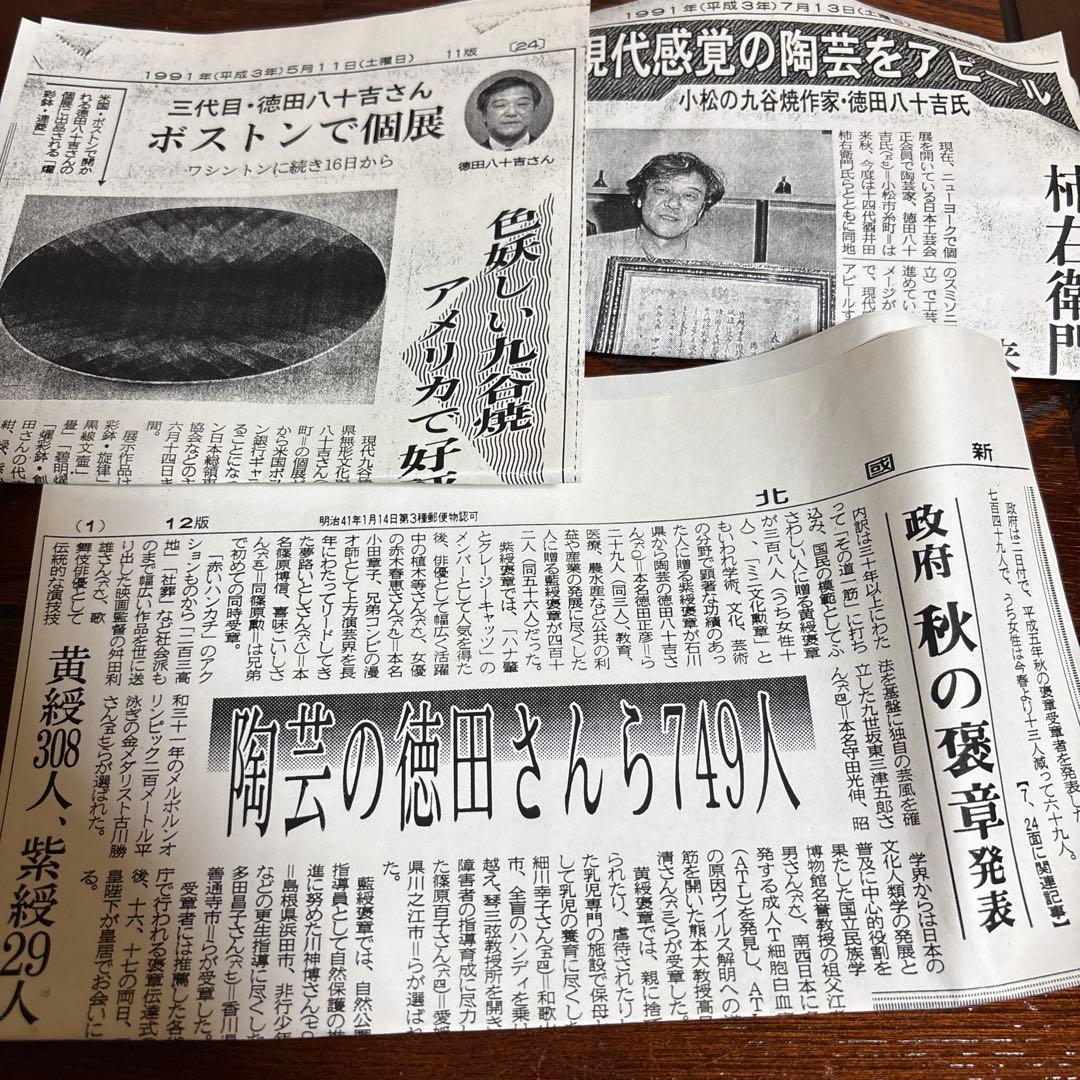 1991年(平成3年)5月11日(土曜日) 11版 〔24〕
三代目・徳田八十吉さん
ボストンで個展
ワシントンに続き16日から
徳田八十吉さん
米国・ボストンで開か
れる徳田八十吉さんの
個展に出品される「燿
彩鉢・連菱」
色妖しい九谷焼
アメリカで好
現代九谷
県無形文化
八十吉さん
町=の個展が
から米国ボス
ン銀行ギャラ
ることにな
ン日本総領事
協会などの主
六月十四日ま
間。
展示作品は
彩鉢・旋律
黒線文壷」
畳」「碧明燿
「燿彩鉢・創
田さんの代
紺、緑、紫
1991年(平成3年)7月13日(土曜日)
現代感覚の陶芸をアピール
小松の九谷焼作家・徳田八十吉氏
現在、ニューヨークで個
展を開いている日本工芸会
正会員で陶芸家、徳田八十
吉氏(五七)=小松市糸町=は
来秋、今度は十四代酒井田
柿右衛門氏らとともに同地
のスミソニ
立)で工芸
進めてい
メージが
で、現代
アピールす
柿右衛門
新
國
北
(1) 12版 明治41年1月14日第3種郵便物認可
政府 秋の褒章発表
陶芸の徳田さんら749人
黄綬308人、紫綬29人
政府は二日付で、平成五年秋の褒章受章者を発表した
七百四十九人で、うち女性は今春より十三人減って六十九人。
【7、24面に関連記事】
内訳は三十年以上にわた
って「その道一筋」に打ち
込み、国民の模範としてふ
さわしい人に贈る黄綬褒章
が三百八人(うち女性十
人)、「ミニ文化勲章」と
もいわれ学術、文化、芸術
の分野で顕著な功績のあっ
た人に贈る紫綬褒章が石川
県から陶芸の徳田八十吉さ
ん(六〇)=本名徳田正彦=ら
二十九人(同三人)、教育、
医療、農水産など公共の利
益や産業の発展に尽くした
人に贈る藍綬褒章が四百十
二人(同五十六人)だった。
紫綬褒章では、「ハナ肇
とクレージーキャッツ」の
メンバーとして人気を得た
後、俳優として幅広く活躍
中の植木等さん(六六)、女優
の赤木春恵さん(六九)=本名
小田章子、兄弟コンビの漫
才師として上方演芸界を長
年にわたってリードしてき
た夢路いとしさん(六八)=本
名篠原博信、喜味こいしさ
ん(六六)=同篠原勲=は兄弟
で初めての同時受章。
「赤いハンカチ」のアク
ションものから「二百三高
地」「社葬」など社会派も
のまで幅広い作品を世に送
り出した映画監督の舛田利
雄さん(六六)、歌
舞伎俳優として
伝統的な演技技
法を基盤に独自の芸風を確
立した九世坂東三津五郎さ
ん(六四)=本名守田光伸、昭
和三十一年のメルボルンオ
リンピック二百メートル平
泳ぎの金メダリスト古川勝
さん(五七)らが選ばれた。
学界からは日本の
文化人類学の発展と
普及に中心的役割を
果たした国立民族学
博物館名誉教授の祖父江
男さん(六六)、南西日本に
発する成人T細胞白血
(ATL)を発見し、AT
の原因ウイルス解明への
筋を開いた熊本大教授高月
清さん(六三)らが受章した。
黄綬褒章では、親に捨
られたり、虐待されたりし
た乳児専門の施設で保母
して乳児の養育に尽くした
細川幸子さん(五四)=和歌山
市、全盲のハンディを乗り
越え、琴三弦教授所を開き
障害者の指導育成に尽力し
た篠原百子さん(六四)=愛媛
県川之江市=らが選ばれ
た。
藍綬褒章では、自然公園
指導員として自然保護の推
進に努めた川神博さん(七〇)
=島根県浜田市、非行少年
などの更生指導に尽くした
多田昌子さん(六七)=香川県
善通寺市=らが受章した。
受章者には推薦した各省
庁で行われる褒章伝達式の
後、十六、十七の両日、
皇陛下が皇居でお会いに
る。